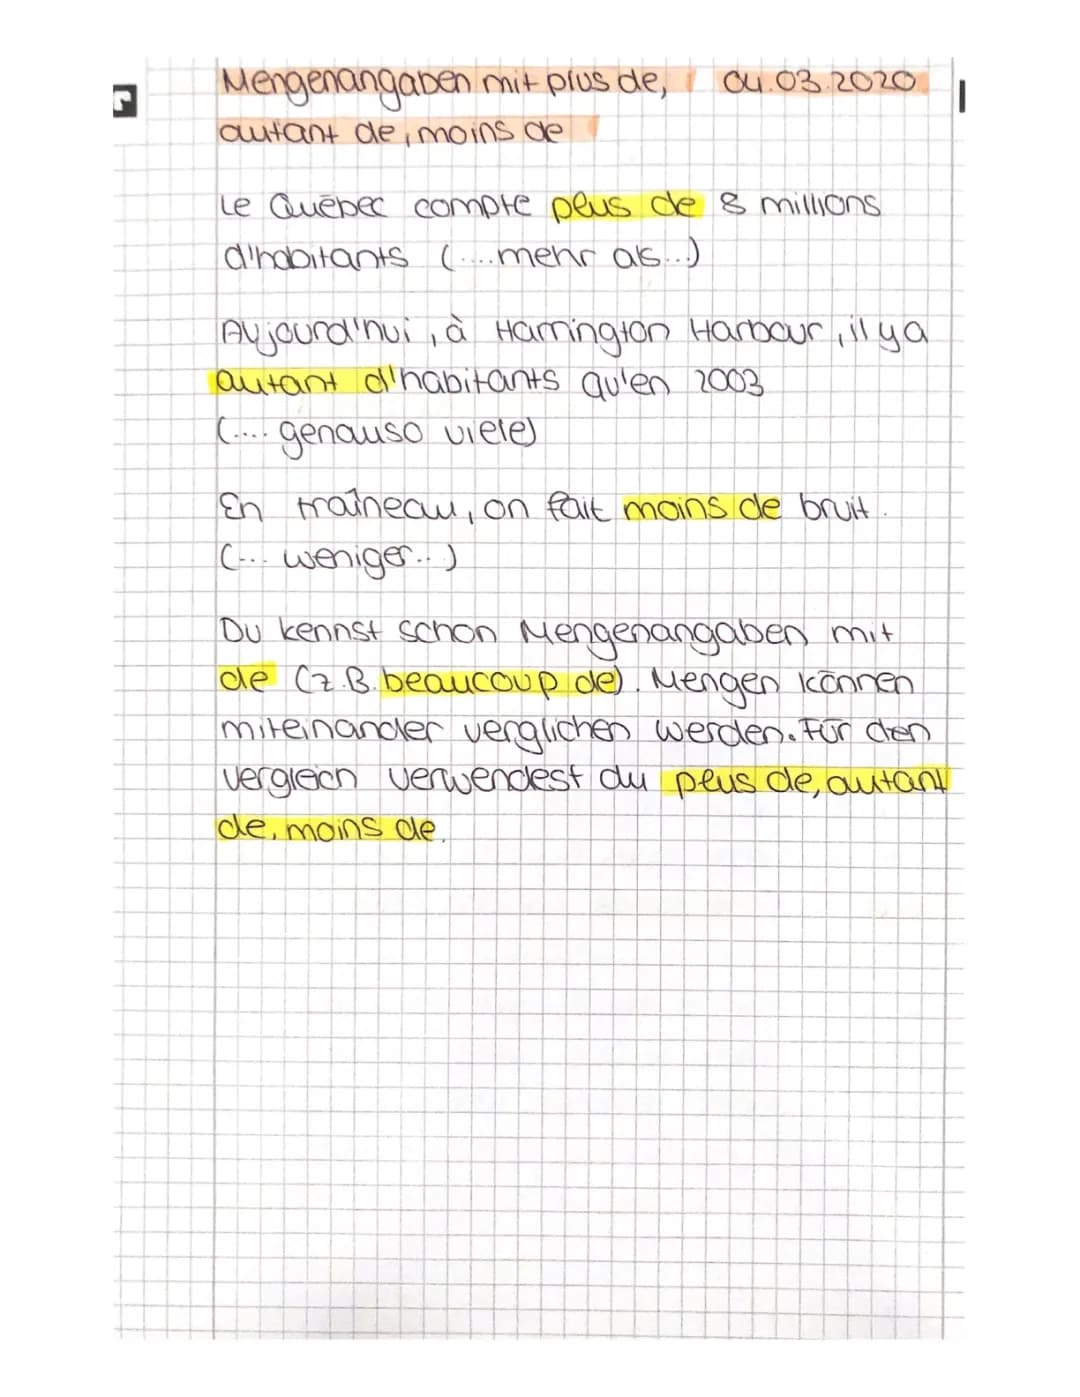 Mengenangaben mit plus de, 04.03.2020
autant de, moins de
Le Québec compte plus de 8 millions
d'habitants (....mehr als...)
Aujourd'hui, à Harrington Harbour, il y a
autant d'habitants qu'en 2003
(.... genauso viele)
En traîneau, on fait moins de bruit.
(... weniger...)
Du kennst schon Mengenangaben mit
de (z.B. beaucoup de). Mengen können
miteinander verglichen werden. Für den
Vergleich verwendest du plus de, autant
de, moins de.